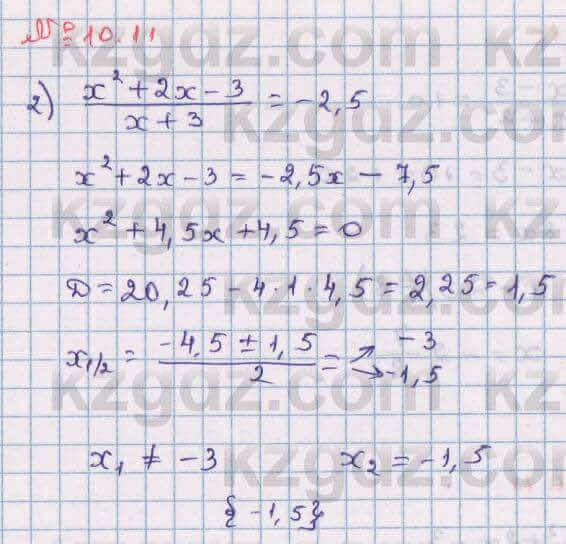 № 10.11
2) (x² + 2x - 3)/(x + 3) = -2,5
x² + 2x - 3 = -2,5x - 7,5
x² + 4,5x + 4,5 = 0
D = 20,25 - 4·1·4,5 = 2,25 = 1,5
x₁/₂ = (-4,5 ± 1,5)/2 = ↗ -3 ↘ -1,5
x₁ ≠ -3 x₂ = -1,5
{-1,5}
kzgdz.com